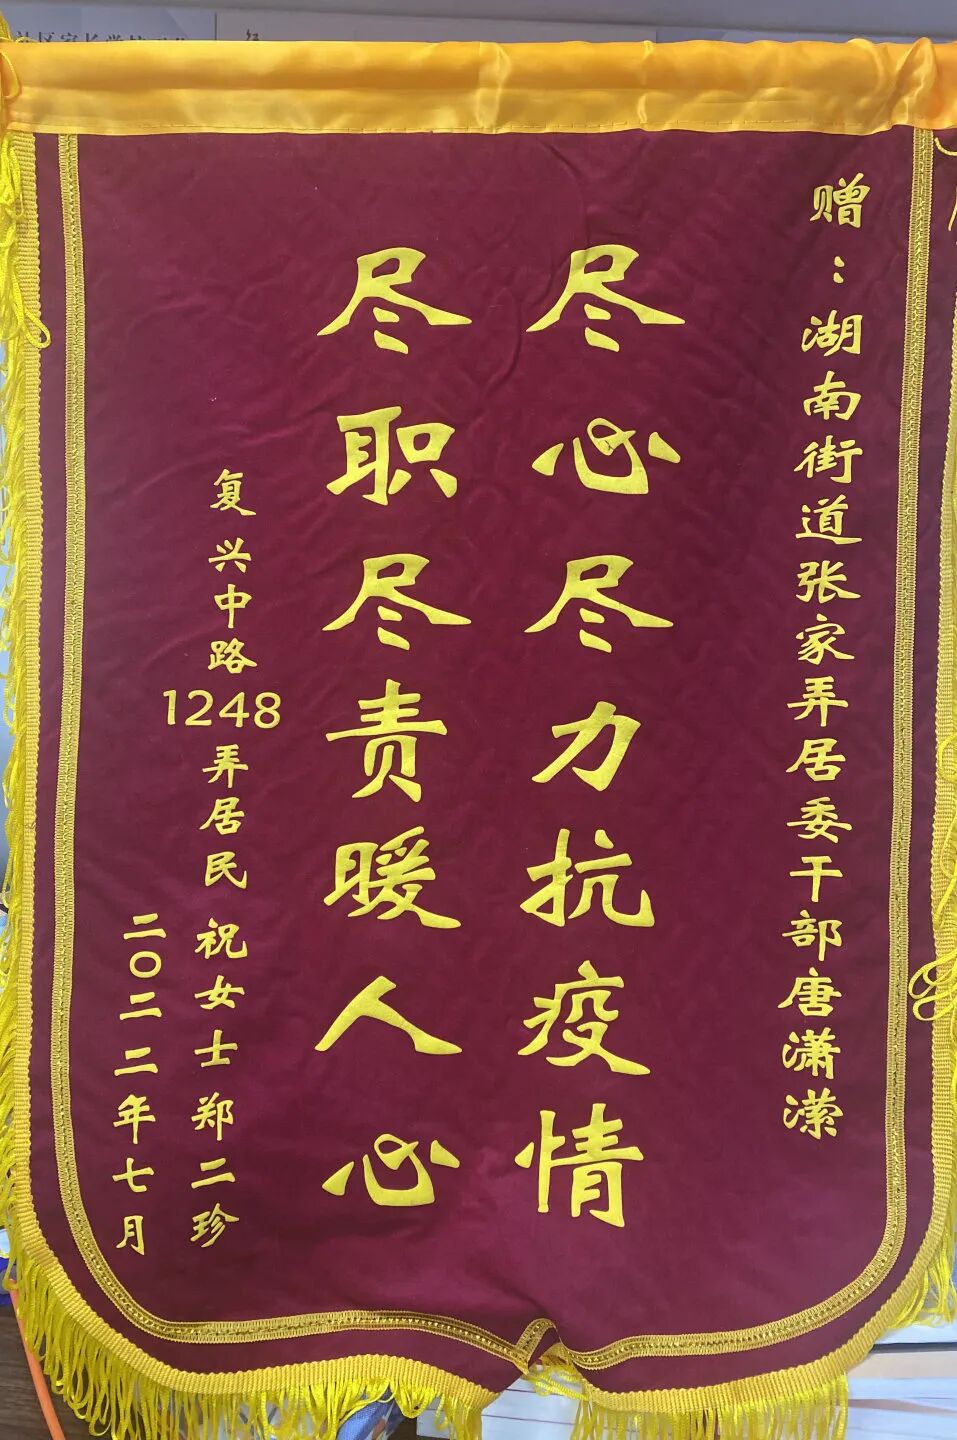 赠：湖南街道张家弄居委干部唐潇潆
尽心尽力抗疫情
尽职尽责暖人心
复兴中路1248弄居民祝女士郑二珍
二〇二二年七月